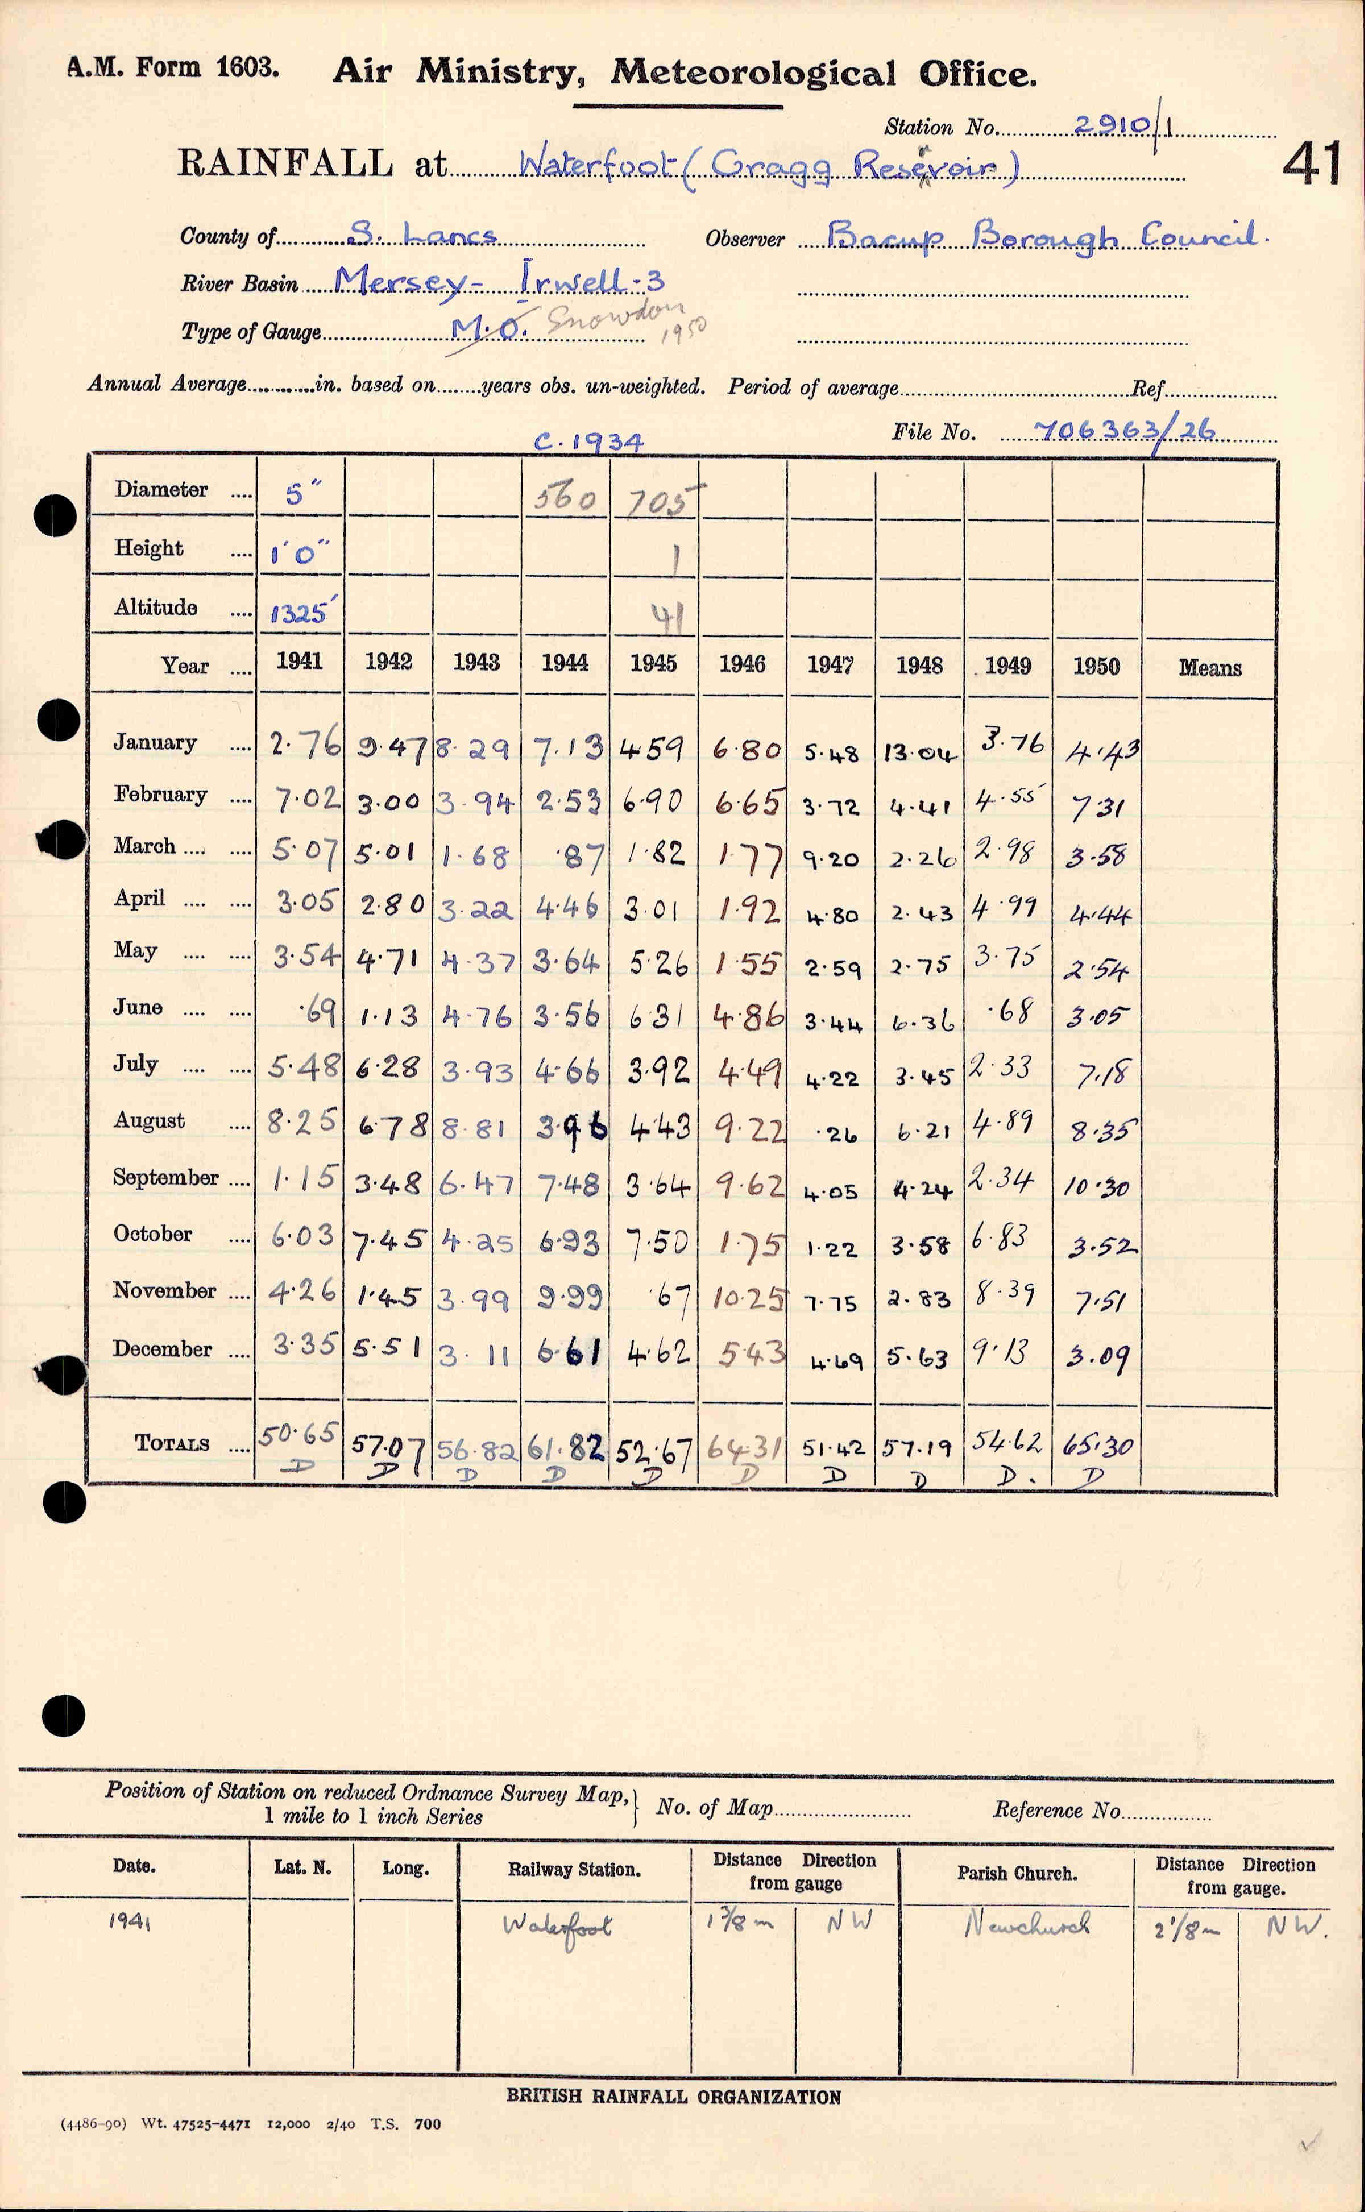 A.M. Form 1603. Air Ministry, Meteorological Office.
Station No. 2910/1
41
RAINFALL at Waterfoot (Cragg Reservoir)
County of S. Lancs Observer Bacup Borough Council.
River Basin Mersey - Irwell - 3
Type of Gauge M.O. Snowdon 1950
Annual Average............in. based on........years obs. un-weighted. Period of average..........Ref..........
File No. 706363/26
C. 1934
Diameter .... 5" 560 705
Height .... 1'0" 1
Altitude .... 1325' 41
Year .... 1941 1942 1943 1944 1945 1946 1947 1948 1949 1950 Means
January .... 2.76 9.47 8.29 7.13 4.59 6.80 5.48 13.04 3.76 4.43
February .... 7.02 3.00 3.94 2.53 6.90 6.65 3.72 4.41 4.55 7.31
March .... .... 5.07 5.01 1.68 .87 1.82 1.77 9.20 2.26 2.98 3.58
April .... .... 3.05 2.80 3.22 4.46 3.01 1.92 4.80 2.43 4.99 4.44
May .... .... 3.54 4.71 4.37 3.64 5.26 1.55 2.59 2.75 3.75 2.54
June .... .... .69 1.13 4.76 3.56 6.31 4.86 3.44 6.36 .68 3.05
July .... .... 5.48 6.28 3.93 4.66 3.92 4.49 4.22 3.45 2.33 7.18
August .... 8.25 6.78 8.81 3.96 4.43 9.22 .26 6.21 4.89 8.35
September .... 1.15 3.48 6.47 7.48 3.64 9.62 4.05 4.24 2.34 10.30
October .... 6.03 7.45 4.25 6.93 7.50 1.75 1.22 3.58 6.83 3.52
November .... 4.26 1.45 3.99 9.99 .67 10.25 7.75 2.83 8.39 7.51
December .... 3.35 5.51 3.11 6.61 4.62 5.43 4.69 5.63 9.13 3.09
TOTALS .... 50.65 57.07 56.82 61.82 52.67 64.31 51.42 57.19 54.62 65.30
D D D D D D D D D. D
Position of Station on reduced Ordnance Survey Map, 1 mile to 1 inch Series } No. of Map.......... Reference No..........
Date. Lat. N. Long. Railway Station. Distance Direction from gauge Parish Church. Distance Direction from gauge.
1941 Waterfoot 1 3/8 m NW Newchurch 2 1/8 m NW.
BRITISH RAINFALL ORGANIZATION
(4486-90) Wt. 47525-4471 12,000 2/40 T.S. 700